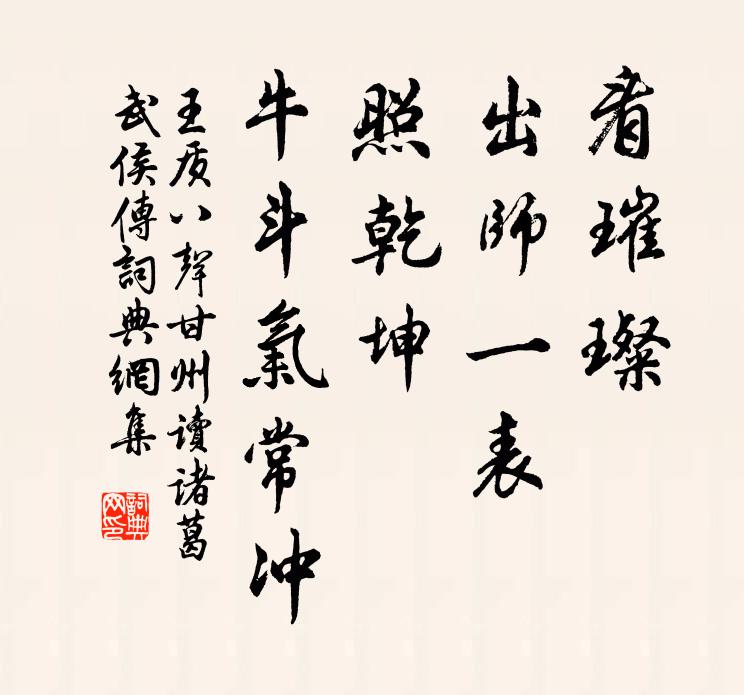 看璀璨
出師一表
照乾坤
牛斗氣常沖
王质八聲甘州讀諸葛
武侯傳詞典網集
詞典网印